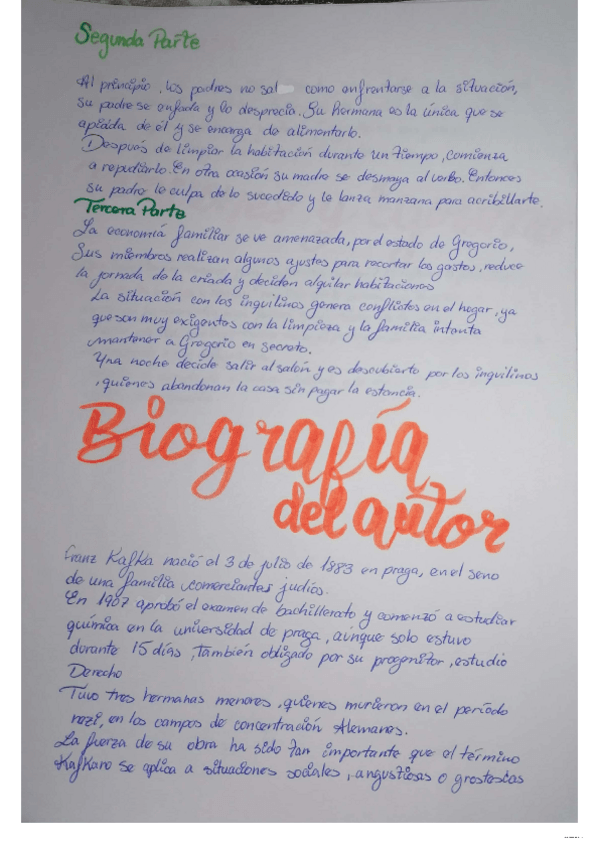 Segunda Parte
Al principio, los padres no sa como enfrentarse a la situación,
su padre se enfada y lo desprecia. Su hermana es la única que se
apiada de él y se encarga de alimentarlo.
Después de limpiar la habitación durante un tiempo, comienza
a repudiarlo. En otra ocasión su madre se desmaya al verbo. Entonces
su padre le culpa de lo sucedido y le lanza manzana para acribillarte.
Tercera Parte
La economía familiar se ve amenazada, por el estado de Gregorio,
Sus miembros realizan algunos ajustes para recortar los gastos, reduce
la jornada de la criada y deciden alquilar habitaciones
La situación con los inquilinos genera conflictos en el hogar, ya
que son muy exigentes con la limpieza y la familia intenta
mantener a Gregorio en secreto.
Una noche decide salir al salón y es descubierto por los inquilinos
, quienes abandonan la casa sin pagar la estancia.
Biografía
del autor
Franz Kafka nació el 3 de julio de 1883 en praga, en el seno
de una familia comerciantes judíos.
En 1907 aprobó el examen de bachillerato y comenzó a estudiar
química en la universidad de praga, aunque solo estuvo
durante 15 días, También obligado por su progenitor, estudio
Derecho
Tuvo tres hermanas menores, quienes murieron en el período
nazi, en los campos de concentración Alemanes.
La fuerza de su obra ha sido tan importante que el término
Kafkano se aplica a situaciones sociales, angustiosas o grostescas